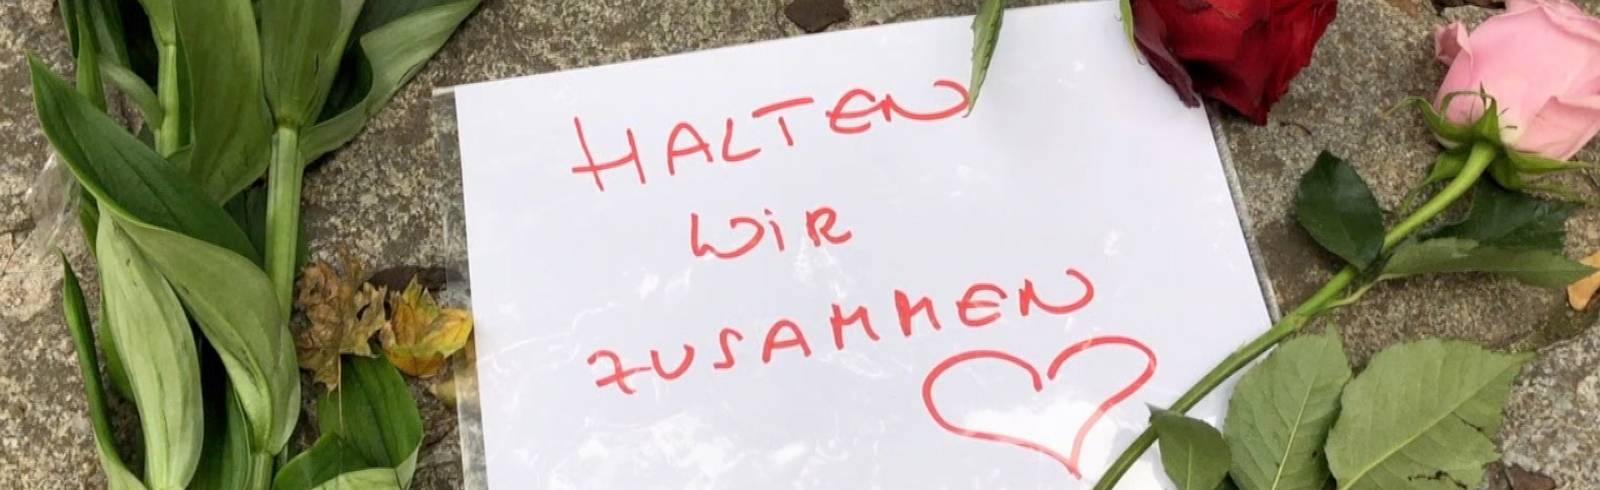 HALTEN
WiR
ZUSAMMEN